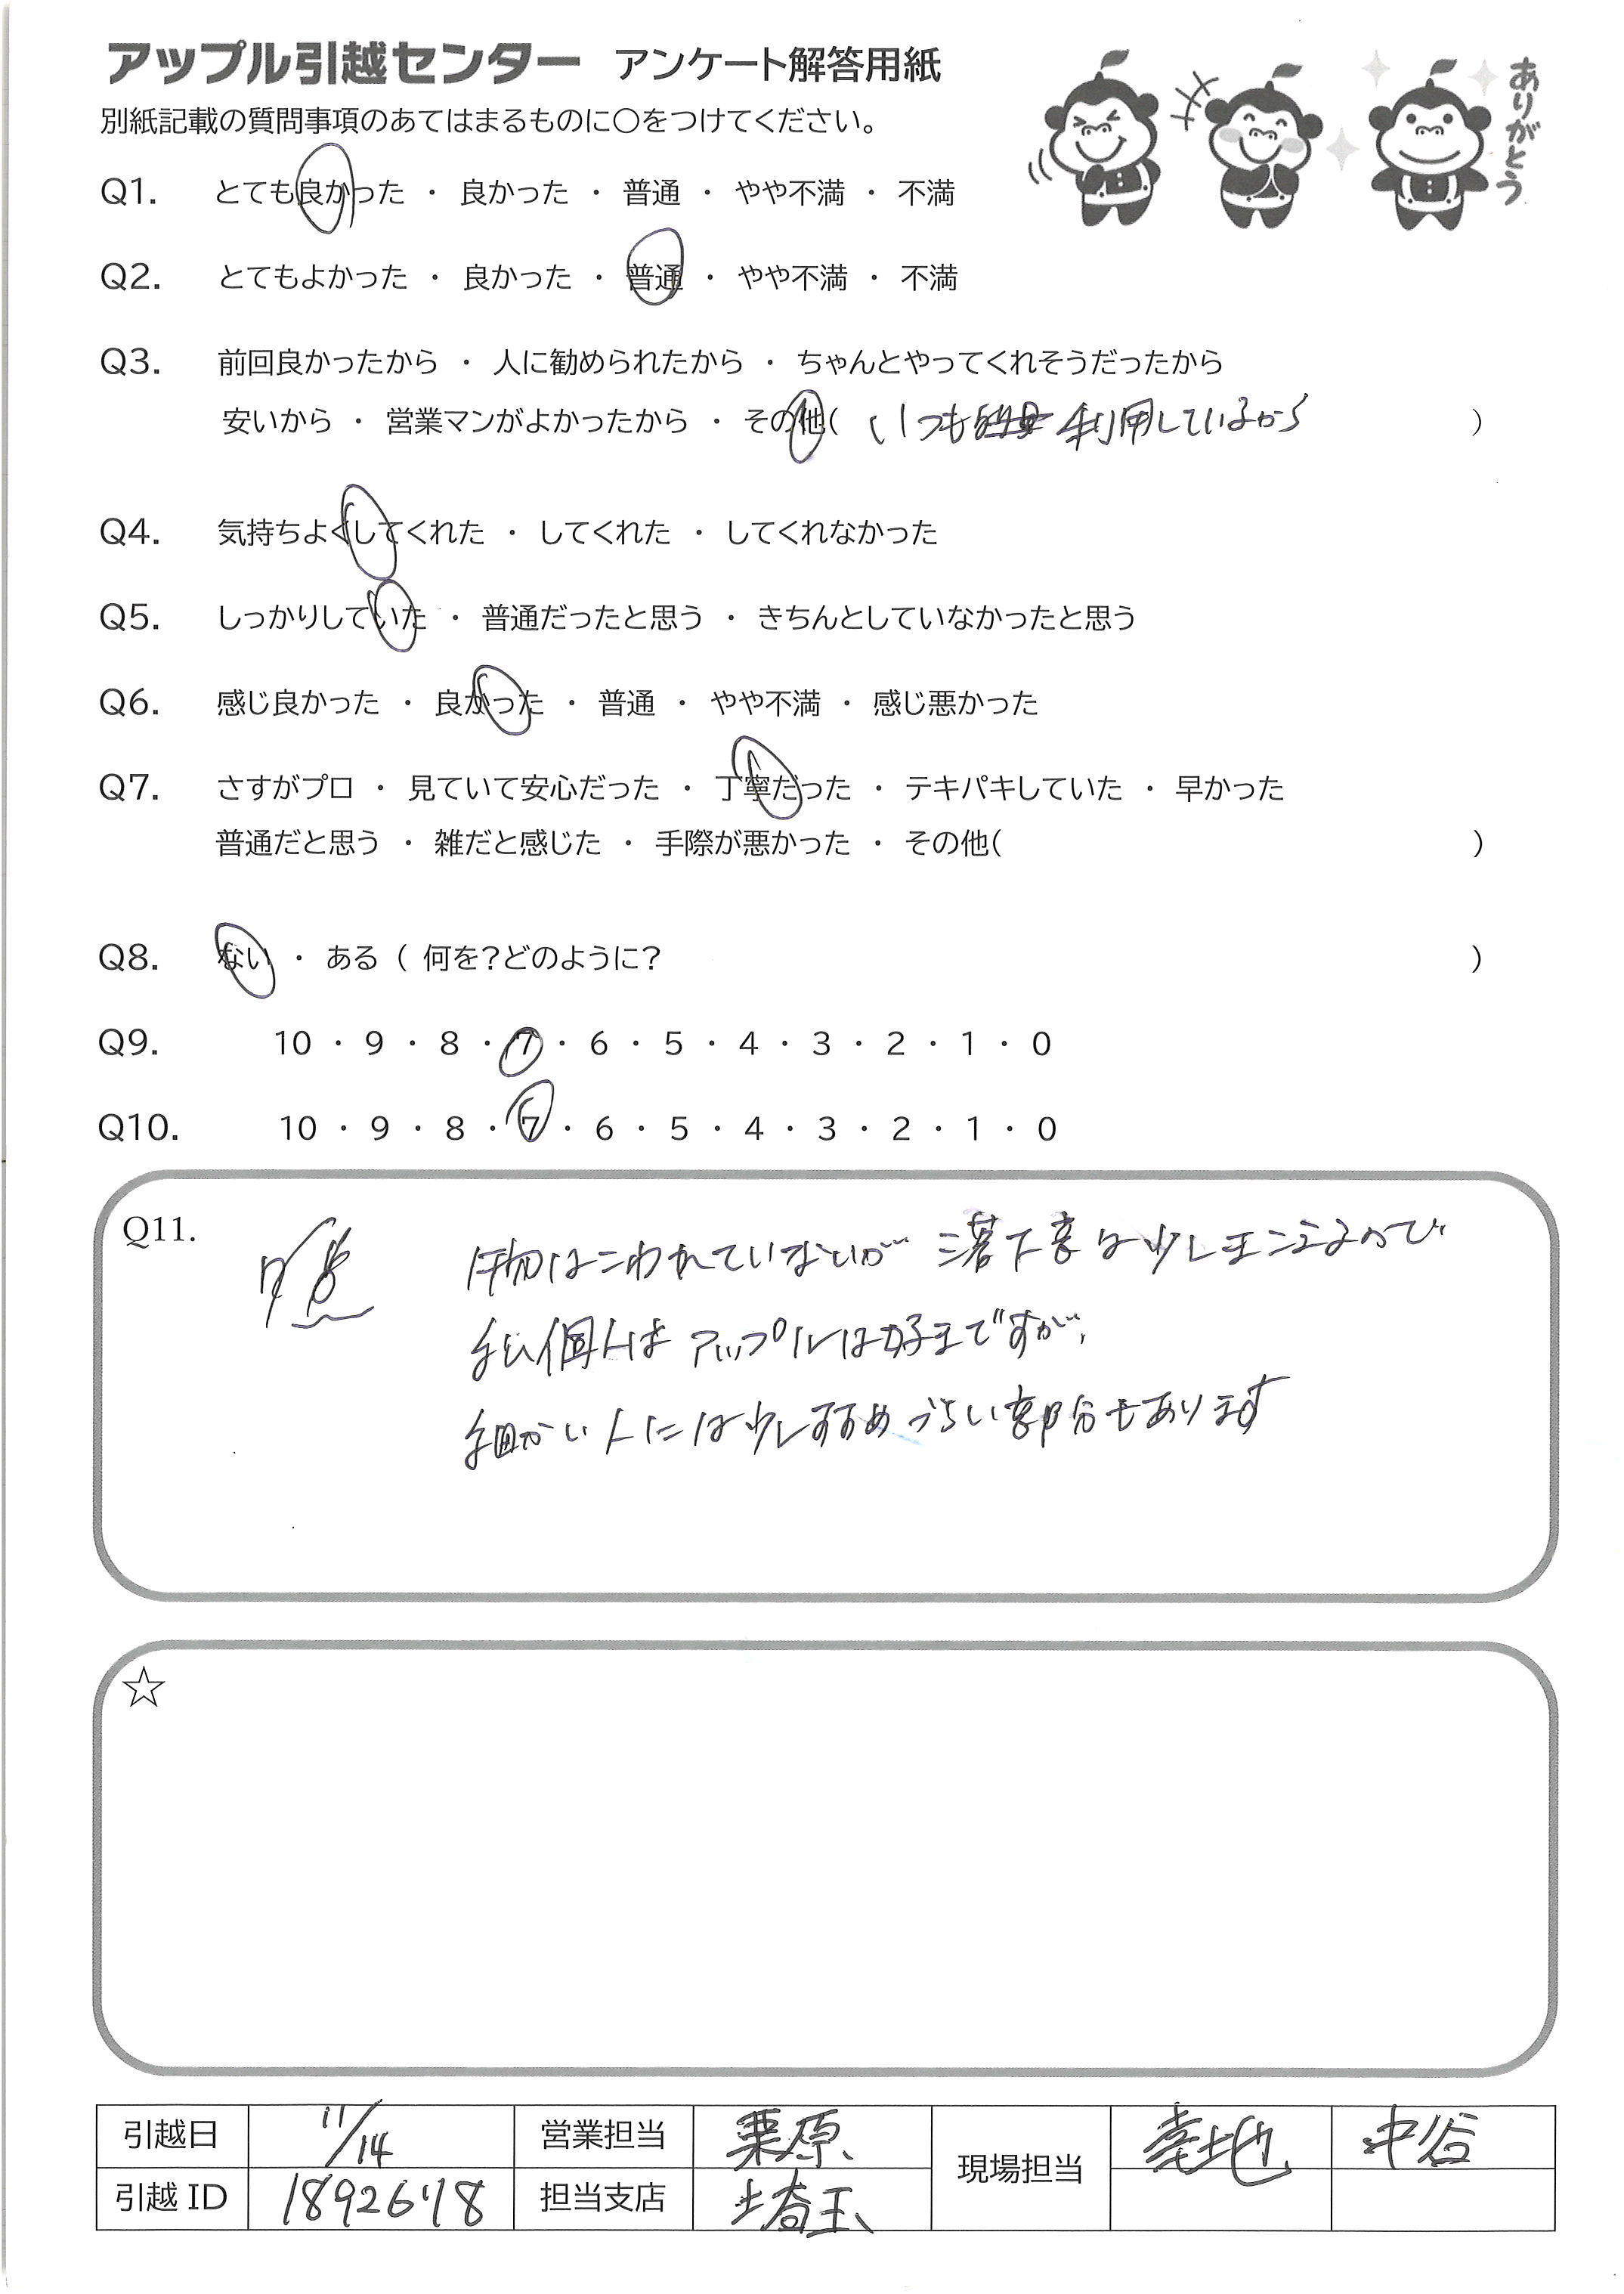 アップル引越センター アンケート解答用紙
別紙記載の質問事項のあてはまるものに〇をつけてください。
ありがとう
Q1. とても良かった ・ 良かった ・ 普通 ・ やや不満 ・ 不満
Q2. とてもよかった ・ 良かった ・ 普通 ・ やや不満 ・ 不満
Q3. 前回良かったから ・ 人に勧められたから ・ ちゃんとやってくれそうだったから
安いから ・ 営業マンがよかったから ・ その他( いつも 利用しているから )
Q4. 気持ちよくしてくれた ・ してくれた ・ してくれなかった
Q5. しっかりしていた ・ 普通だったと思う ・ きちんとしていなかったと思う
Q6. 感じ良かった ・ 良かった ・ 普通 ・ やや不満 ・ 感じ悪かった
Q7. さすがプロ ・ 見ていて安心だった ・ 丁寧だった ・ テキパキしていた ・ 早かった
普通だと思う ・ 雑だと感じた ・ 手際が悪かった ・ その他( )
Q8. ない ・ ある ( 何を？どのように？ )
Q9. 10 ・ 9 ・ 8 ・ 7 ・ 6 ・ 5 ・ 4 ・ 3 ・ 2 ・ 1 ・ 0
Q10. 10 ・ 9 ・ 8 ・ 7 ・ 6 ・ 5 ・ 4 ・ 3 ・ 2 ・ 1 ・ 0
Q11. 7点 はこわれていないが 落下音は少しきこえるので
私個人は アップルは好きですが、
細かい人には少しすすめづらい部分もあります
☆
引越日 11/14 営業担当 栗原 現場担当 中谷
引越 ID 担当支店 埼玉